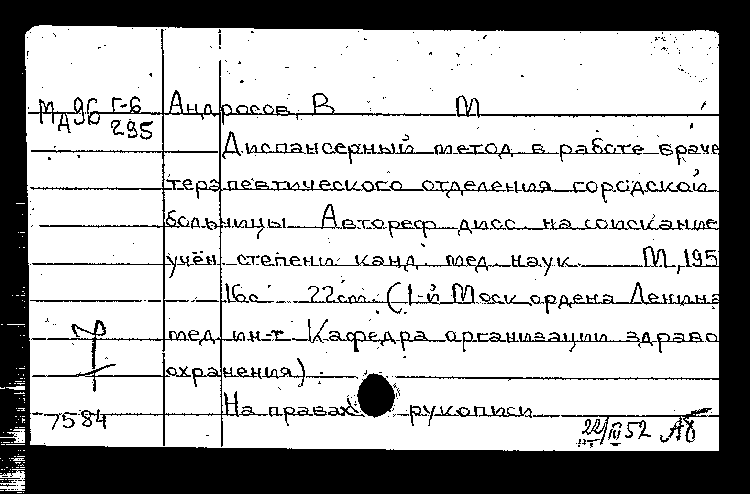 МА96 Г-6
295
Андросов, В М
Диспансерный метод в работе враче
терапевтического отделения городской
больницы Автореф дисс на соискание
учён степени канд мед наук М, 195
16с 22см. (1-й Моск ордена Ленина
мед ин-т Кафедра организации здраво
охранения).
На правах рукописи
7584
22/IV 52 АБ